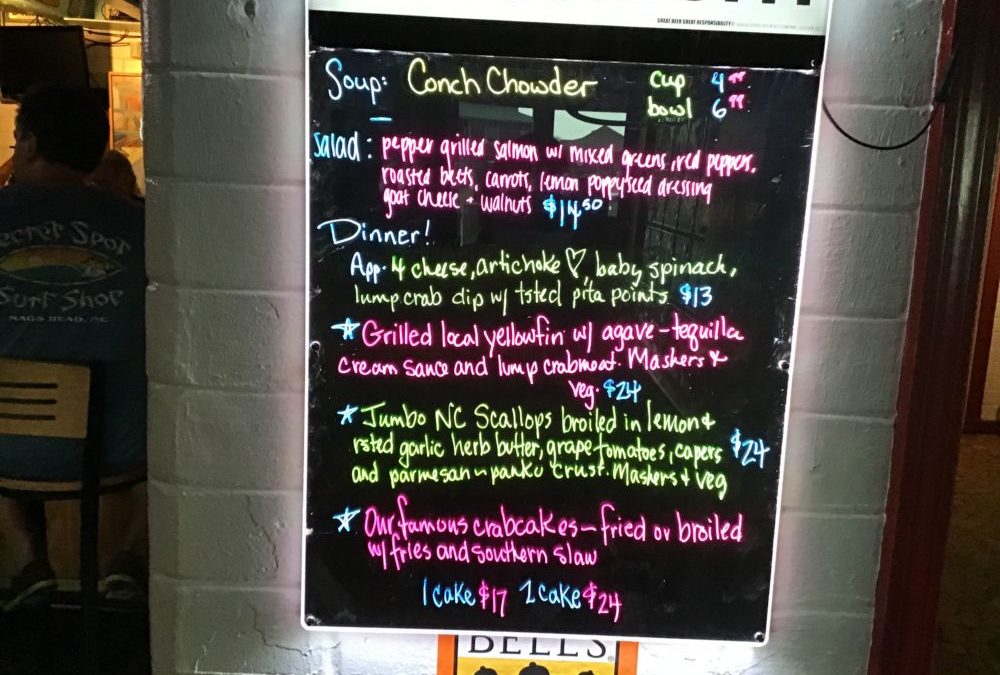 GREAT BEER GREAT RESPONSIBILITY
Soup: Conch Chowder cup 4 99
bowl 6 99
Salad: pepper grilled salmon w/ mixed greens, red peppers,
roasted beets, carrots, lemon poppyseed dressing
goat cheese + walnuts $14.50
Dinner!
App. 4 cheese, artichoke ♡, baby spinach,
lump crab dip w/ tsted pita points $13
☆ Grilled local yellowfin w/ agave-tequilla
cream sauce and lump crabmeat. Mashers &
veg. $24
☆ Jumbo NC Scallops broiled in lemon &
rsted garlic herb butter, grape tomatoes, capers $24
and parmesan-panko crust. Mashers & veg
☆ Our famous crabcakes - fried or broiled
w/ fries and southern slaw
1 cake $17 2 cake $24
BELL'S
Secret Spot
Surf Shop
NAGS HEAD, NC